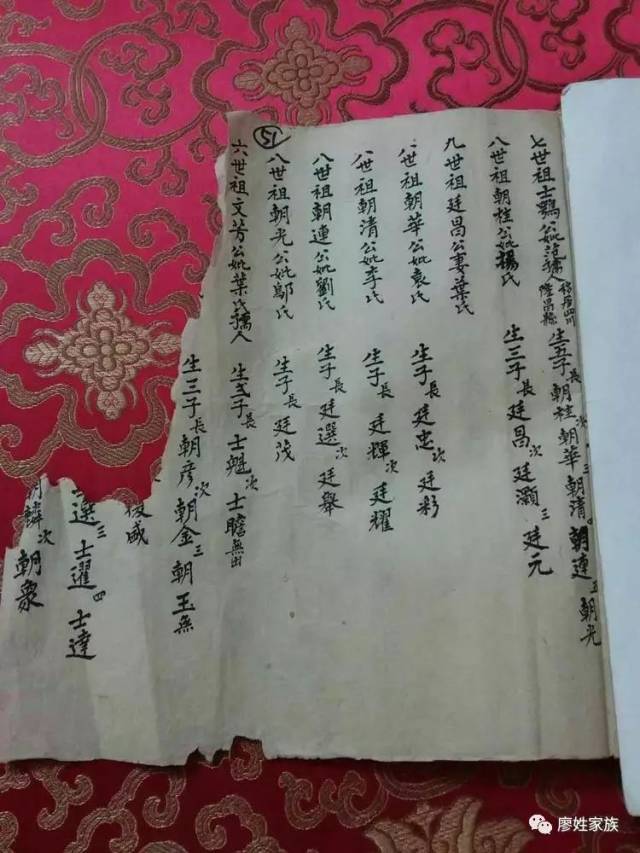 七世祖士鶚公妣范孺人移居四川隆昌縣 生五子長朝桂次朝華三朝清四朝連五朝光
八世祖朝桂公妣楊氏 生三子長廷昌次廷灝三廷元
九世祖廷昌公妻葉氏
八世祖朝華公妣袁氏 生子長廷忠次廷彩
八世祖朝清公妣李氏 生子長廷輝次廷耀
八世祖朝連公妣劉氏 生子長廷選次廷舉
八世祖朝光公妣鄔氏 生子長廷茂
15
六世祖文芳公妣葉氏孺人 生子長士魁次士瞻無出
生三子長朝彥次朝金三朝玉無
俊盛
選三士濯四士達
朝麟次朝衆
廖姓家族